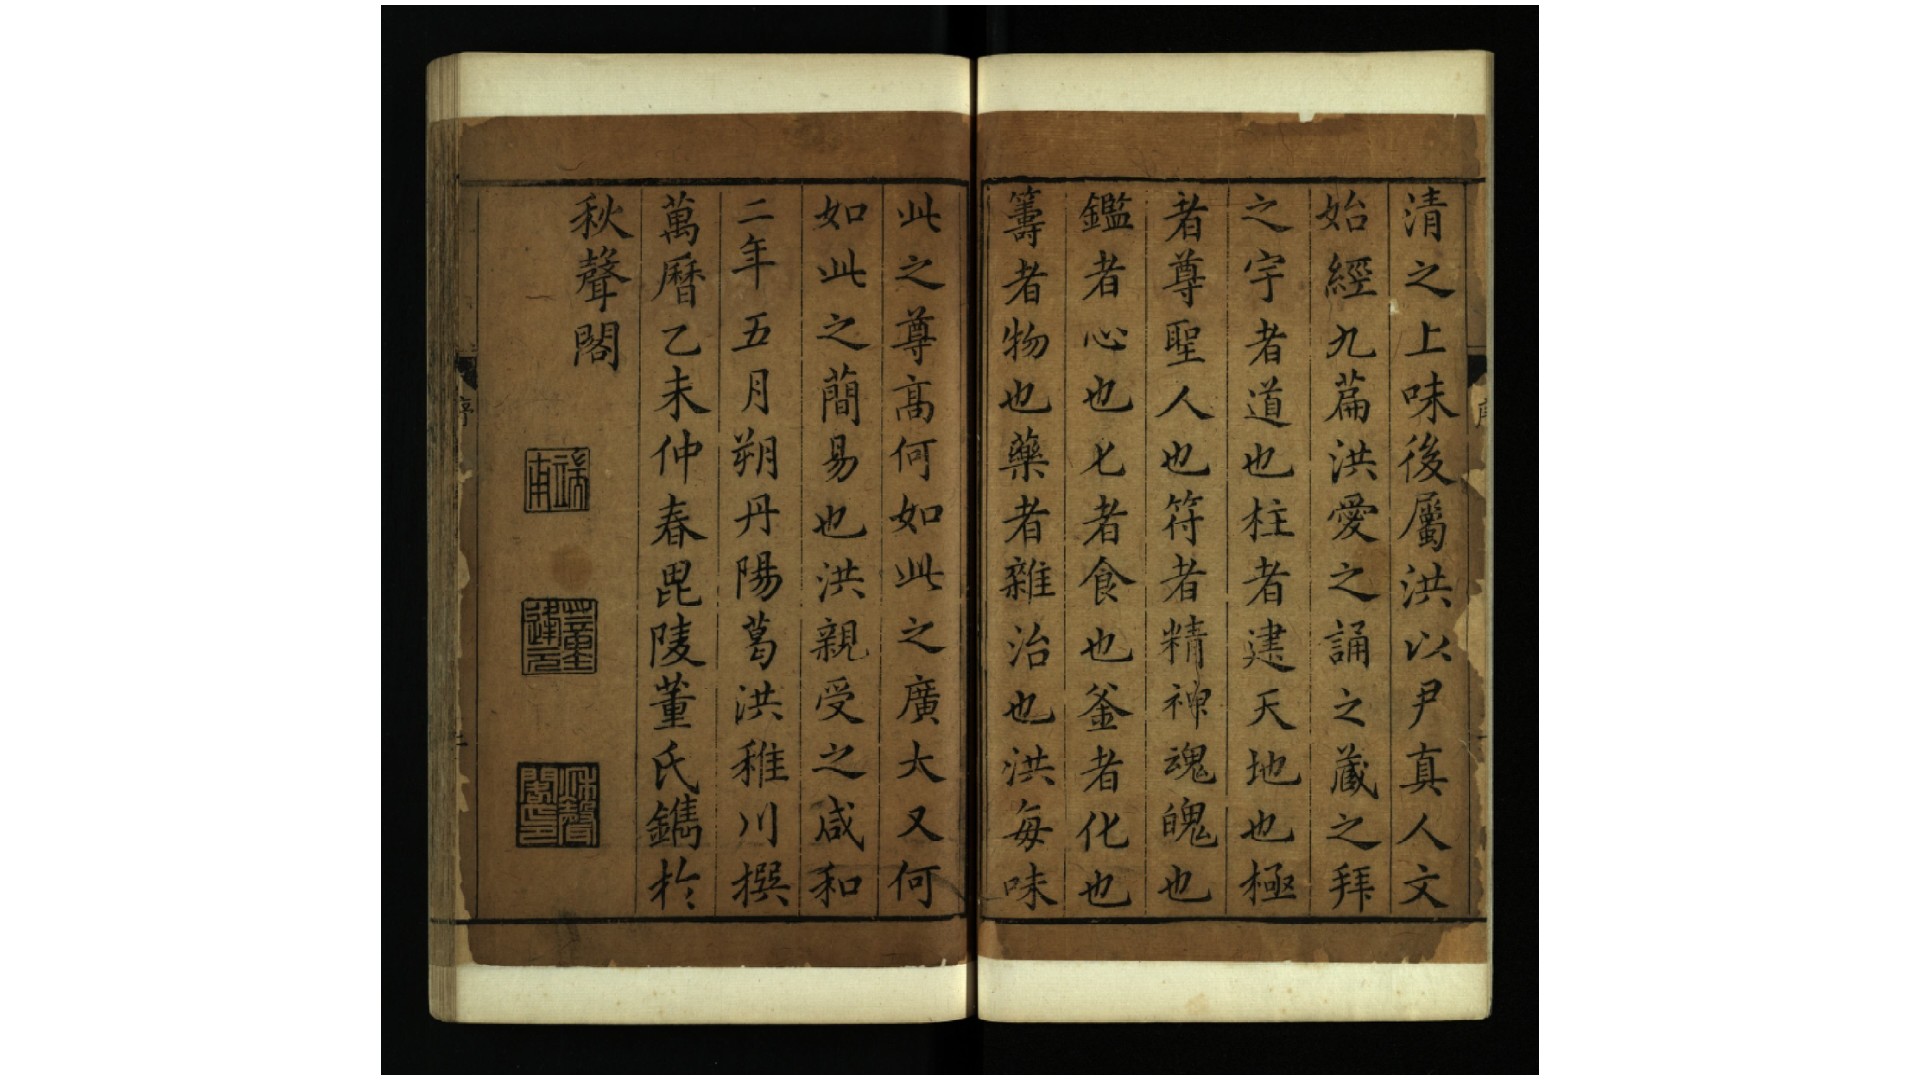 清之上味後屬洪以尹真人文
始經九篇洪愛之誦之藏之拜
之宇者道也柱者建天地也極
者尊聖人也符者精神魂魄也
鑑者心也匕者食也釜者化也
籌者物也藥者雜治也洪每味
此之尊高何如此之廣大又何
如此之蕳易也洪親受之咸和
二年五月朔丹陽葛洪稚川撰
萬曆乙未仲春毘陵董氏鐫於
秋聲閣
董逢元
秋聲閣印
序